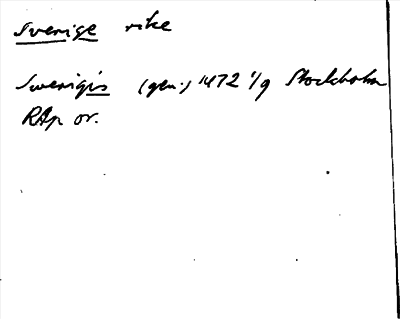 Sverige rike
Swerigis (gen.) 1472 1/9 Stockholm
RAp or.